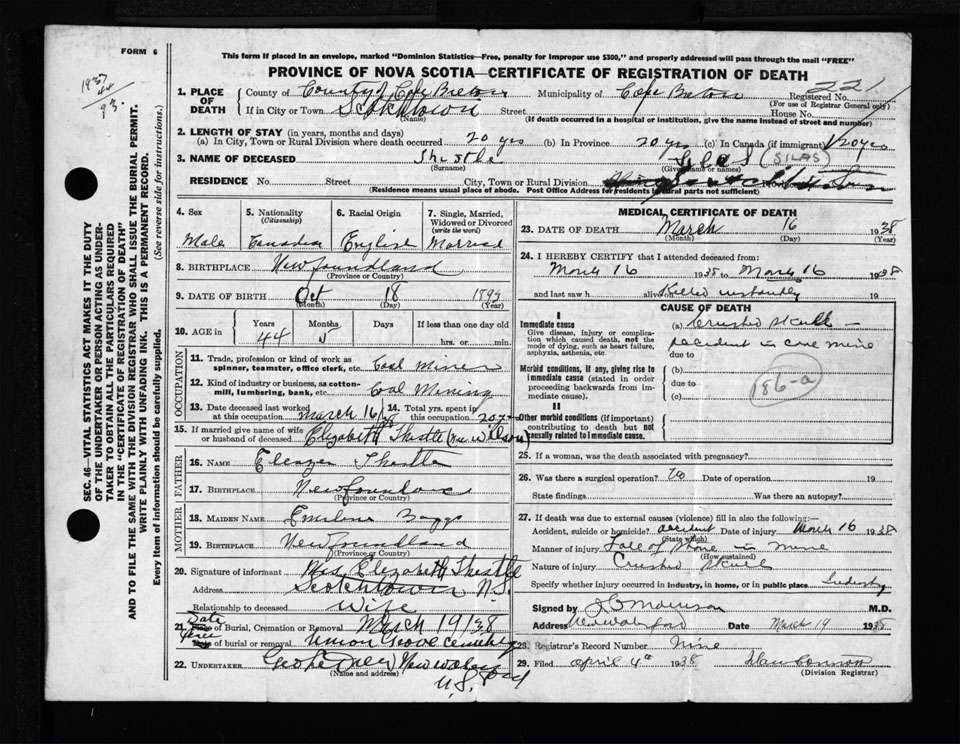 FORM 6
1937
44
93
This form if placed in an envelope, marked "Dominion Statistics—Free, penalty for improper use $300," and properly addressed will pass through the mail "FREE"
PROVINCE OF NOVA SCOTIA—CERTIFICATE OF REGISTRATION OF DEATH
221
1. PLACE OF DEATH
County of County of Cape Breton Municipality of Cape Breton Registered No.
(For use of Registrar General only)
If in City or Town Scotchtown Street House No.
(Name) (If death occurred in a hospital or institution, give the name instead of street and number)
2. LENGTH OF STAY (in years, months and days)
(a) In City, Town or Rural Division where death occurred 20 yrs (b) In Province 20 yrs (c) In Canada (if immigrant) 20 yrs
3. NAME OF DECEASED Thistle Silas (SILAS)
(Surname) (Given name or names)
RESIDENCE No. Street City, Town or Rural Division
(Residence means usual place of abode. Post Office Address for residents in rural parts not sufficient)
4. Sex Male
5. Nationality (Citizenship) Canadian
6. Racial Origin English
7. Single, Married, Widowed or Divorced (write the word) Married
8. BIRTHPLACE Newfoundland
(Province or Country)
9. DATE OF BIRTH Oct 18 1893
(Month) (Day) (Year)
10. AGE in Years Months Days If less than one day old
44 5 hrs. or min.
OCCUPATION
11. Trade, profession or kind of work as spinner, teamster, office clerk, etc. Coal Miner
12. Kind of industry or business, as cotton-mill, lumbering, bank, etc. Coal Mining
13. Date deceased last worked at this occupation March 16/38
14. Total yrs. spent in this occupation 20 yrs
15. If married give name of wife or husband of deceased Elizabeth Thistle (nee Wilson)
FATHER
16. NAME Eleazer Thistle
17. BIRTHPLACE Newfoundland
(Province or Country)
MOTHER
18. MAIDEN NAME Emeline Baggs
19. BIRTHPLACE Newfoundland
(Province or Country)
20. Signature of informant Mrs Elizabeth Thistle
Address Scotchtown N.S.
Relationship to deceased Wife
21. Date of Burial, Cremation or Removal March 19/38
Place of burial or removal Union Grove Cemetery
22. UNDERTAKER New Waterford
(Name and address) N.S.
MEDICAL CERTIFICATE OF DEATH
23. DATE OF DEATH March 16 1938
(Month) (Day) (Year)
24. I HEREBY CERTIFY that I attended deceased from:
March 16 1938 to March 16 1938
and last saw h alive on Killed instantly 19
CAUSE OF DEATH
I
Immediate cause
Give disease, injury or complication which caused death, not the mode of dying, such as heart failure, asphyxia, asthenia, etc.
(a) Crushed skull —
accident in coal mine
due to
Morbid conditions, if any, giving rise to immediate cause (stated in order proceeding backwards from immediate cause).
(b)
due to
(c)
186-a
II
Other morbid conditions (if important) contributing to death but not causally related to immediate cause.
25. If a woman, was the death associated with pregnancy?
26. Was there a surgical operation? No Date of operation 19
State findings Was there an autopsy?
27. If death was due to external causes (violence) fill in also the following:
Accident, suicide or homicide? accident Date of injury March 16 1938
(State which)
Manner of injury Fall of stone in mine
(How sustained)
Nature of injury Crushed skull
Specify whether injury occurred in industry, in home, or in public place Industry
Signed by Morrison M.D.
Address New Waterford Date March 19 1938
28. Registrar's Record Number nine
29. Filed April 4th 1938 Dan Connors
(Division Registrar)
SEC. 46—VITAL STATISTICS ACT MAKES IT THE DUTY OF THE UNDERTAKER OR PERSON ACTING AS UNDERTAKER TO OBTAIN ALL THE PARTICULARS REQUIRED IN THE "CERTIFICATE OF REGISTRATION OF DEATH" AND TO FILE THE SAME WITH THE DIVISION REGISTRAR WHO SHALL ISSUE THE BURIAL PERMIT.
WRITE PLAINLY WITH UNFADING INK. THIS IS A PERMANENT RECORD.
Every item of information should be carefully supplied. (See reverse side for instructions.)